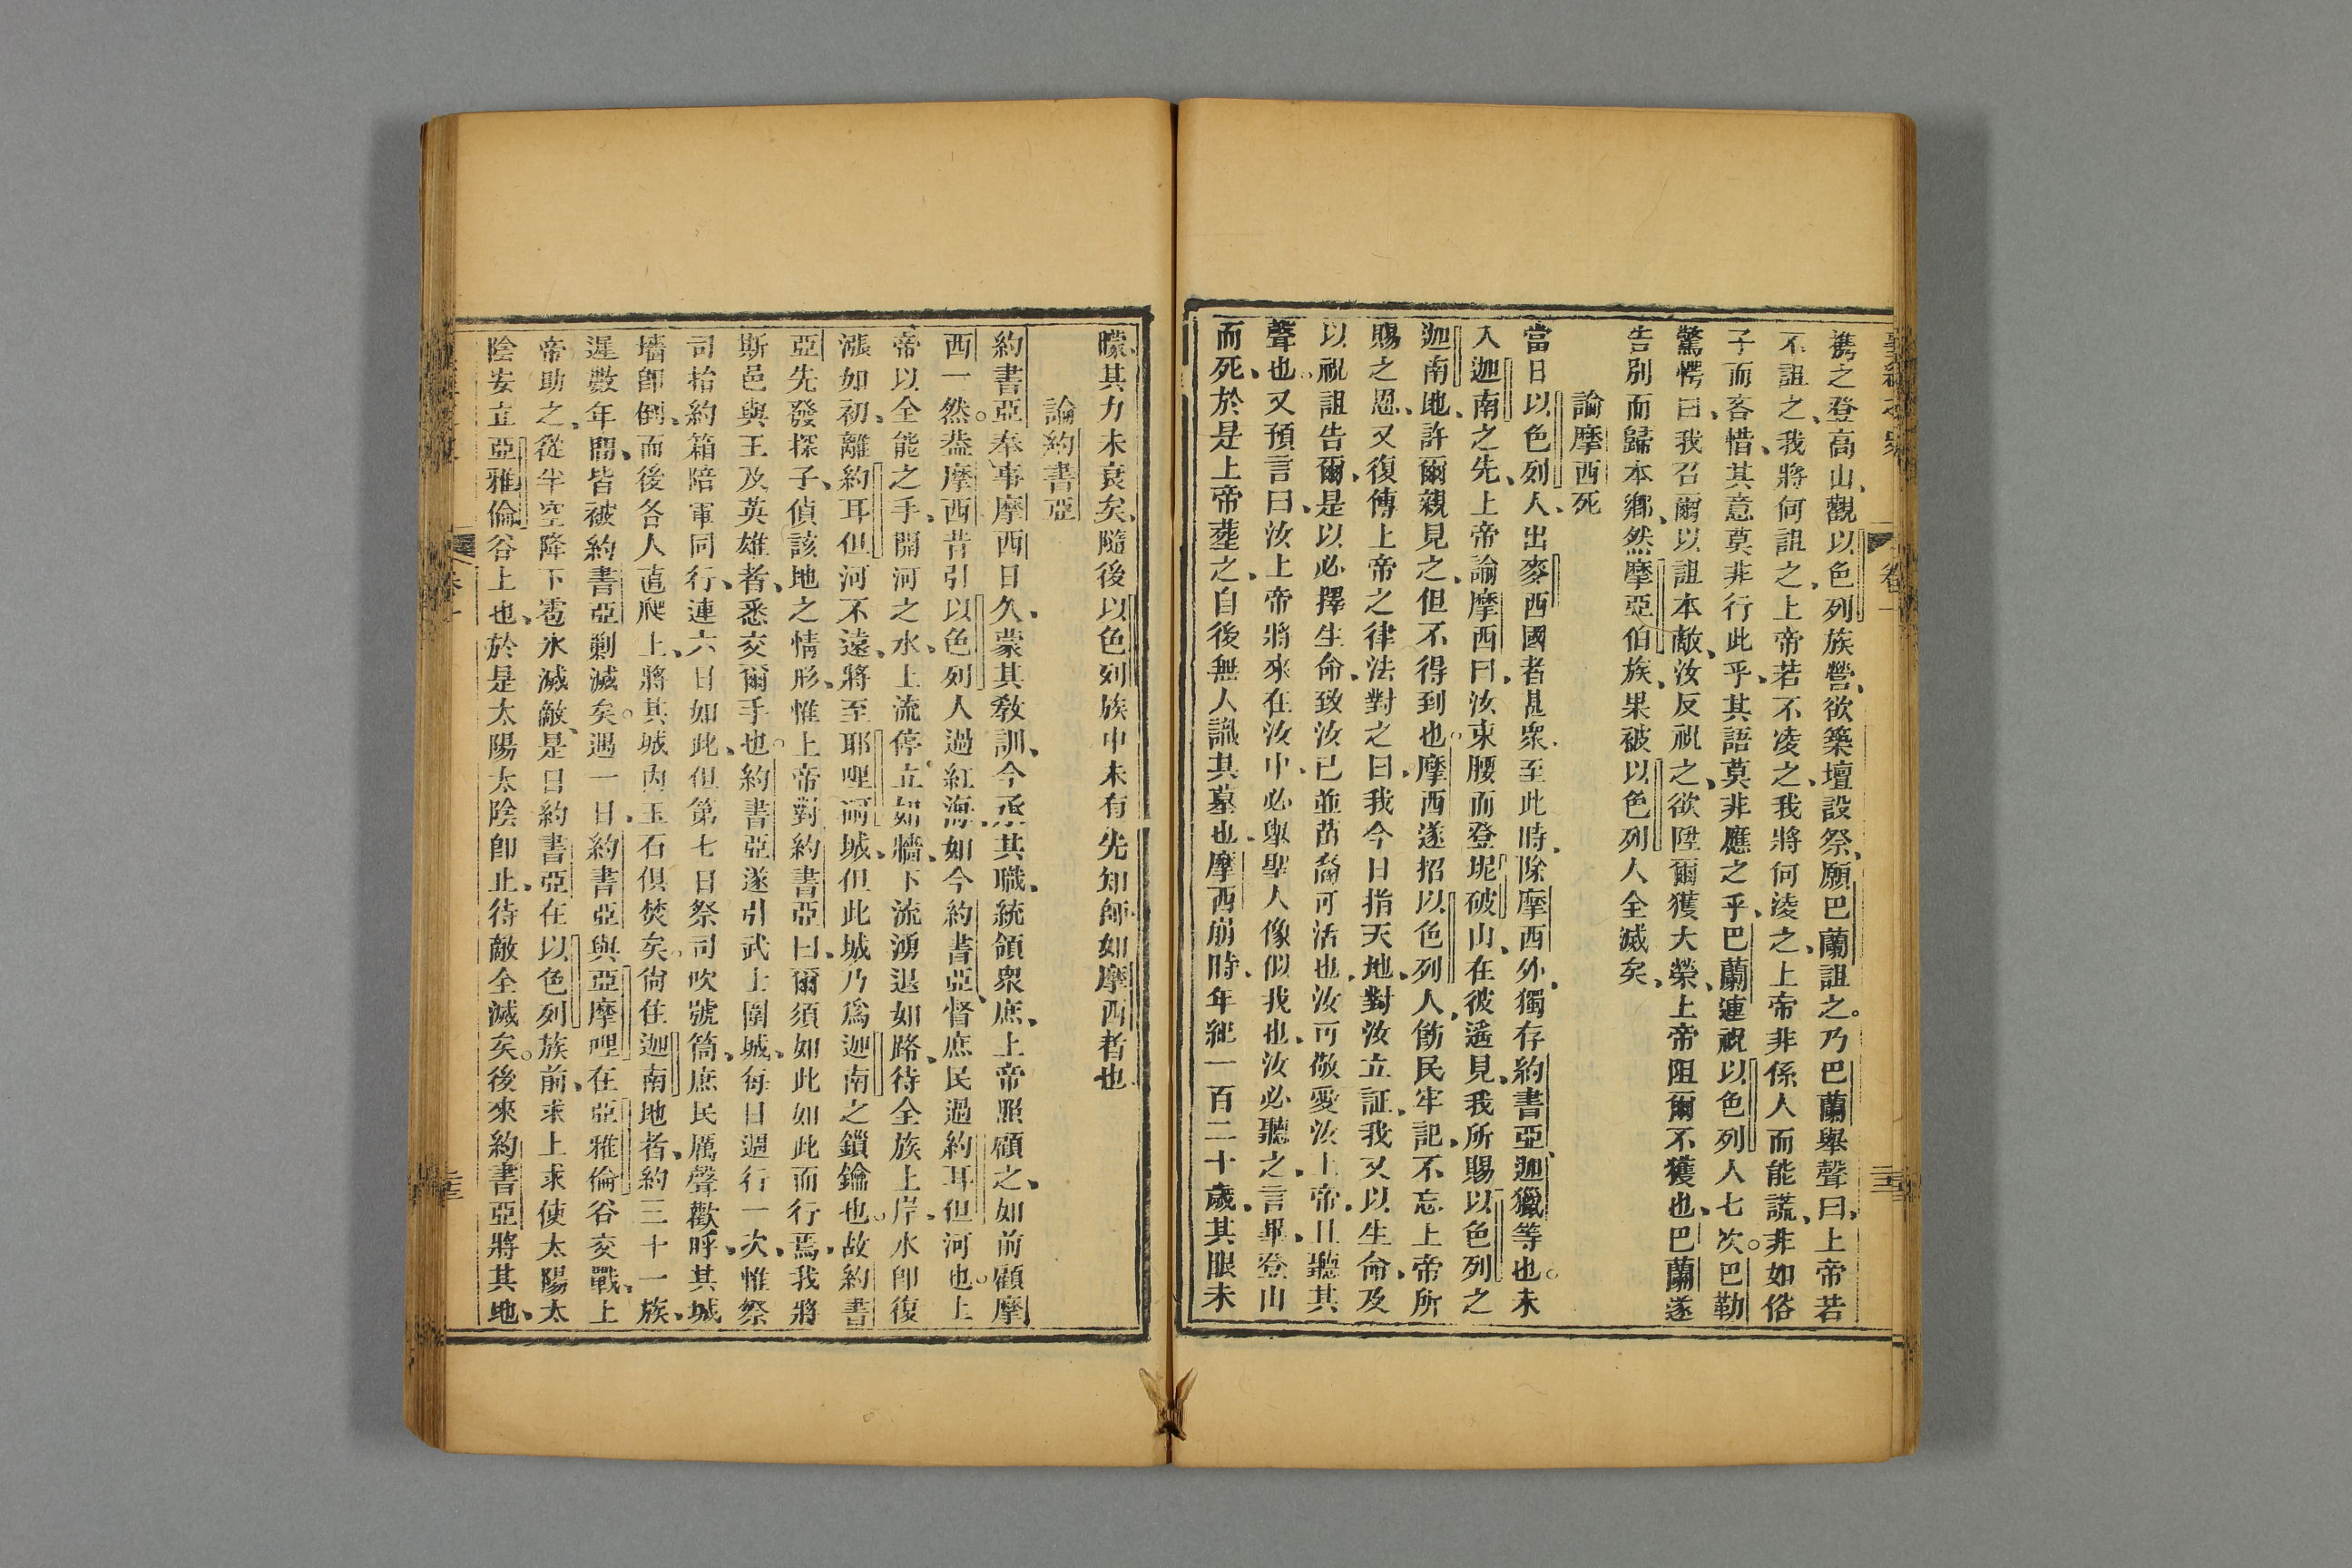 携之登高山、觀以色列族營、欲築壇設祭、願巴蘭詛之。乃巴蘭舉聲曰、上帝若
不詛之、我將何詛之、上帝若不凌之、我將何淩之、上帝非係人而能謊、非如俗
子而吝惜、其意莫非行此乎、其語莫非應之乎、巴蘭連祝以色列人七次。巴勒
驚愕曰、我召爾以詛本敵、汝反祝之、欲陞爾獲大榮、上帝阻爾不獲也、巴蘭遂
告別而歸本鄉、然摩亞伯族、果破以色列人全滅矣、
論摩西死
當日以色列人、出麥西國者甚衆、至此時、除摩西外、獨存約書亞、迦獵等也。未
入迦南之先、上帝諭摩西曰、汝束腰而登坭破山、在彼遙見、我所賜以色列之
迦南地、許爾親見之、但不得到也。摩西遂招以色列人、飭民牢記、不忘上帝所
賜之恩、又復傳上帝之律法對之曰、我今日指天地、對汝立証、我又以生命、及
以祝詛告爾、是以必擇生命、致汝已並苗裔可活也、汝可敬愛汝上帝、且聽其
聲也。又預言曰、汝上帝將來在汝中、必舉聖人像似我也、汝必聽之、言畢、登山
而死、於是上帝葬之、自後無人識其墓也、摩西崩時、年紀一百二十歲、其眼未
矇、其力未衰矣、隨後以色列族中未有先知師如摩西者也
論約書亞
約書亞奉事摩西日久、蒙其敎訓、今丞其職、統領衆庶、上帝照顧之、如前顧摩
西一然。葢摩西昔引以色列人過紅海、如今約書亞、督庶民過約耳但河也。上
帝以全能之手、開河之水、上流停立如牆、下流湧退如路、待全族上岸、水即復
漲如初、離約耳但河不遠、將至耶哩河城、但此城乃爲迦南之鎖鑰也。故約書
亞先發探子、偵該地之情形、惟上帝對約書亞曰、爾須如此如此而行焉、我將
斯邑與王及英雄者、悉交爾手也。約書亞遂引武士圍城、每日週行一次、惟祭
司抬約箱陪軍同行、連六日如此、但第七日祭司吹號筒、庶民厲聲歡呼、其城
墻卽倒、而後各人直爬上、將其城內玉石俱焚矣。尙住迦南地者、約三十一族、
遲數年間、皆被約書亞剿滅矣。遇一日、約書亞與亞摩哩在亞雅倫谷交戰、上
帝助之、從半空降下雹氷滅敵、是日約書亞在以色列族前、求上求使太陽太
陰安立亞雅倫谷上也、於是太陽太陰卽止、待敵全滅矣。後來約書亞將其地、